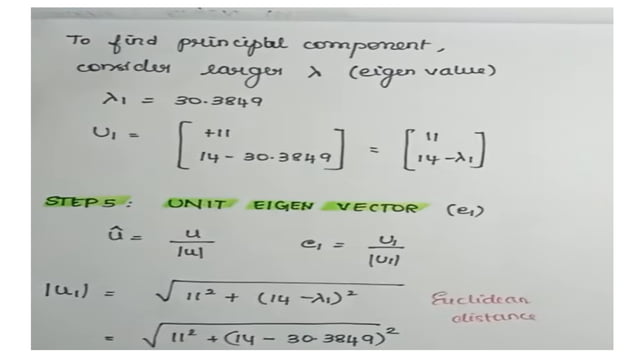 To find principal component,
consider larger λ (eigen value)
λ₁ = 30.3849
U₁ = [ +11 ] = [ 11 ]
[ 14 - 30.3849 ] [ 14 - λ₁ ]
STEP 5: UNIT EIGEN VECTOR (e₁)
û = u / |u| e₁ = U₁ / |U₁|
|u₁| = √(11² + (14 - λ₁)²) Euclidean
distance
= √(11² + (14 - 30.3849)²)